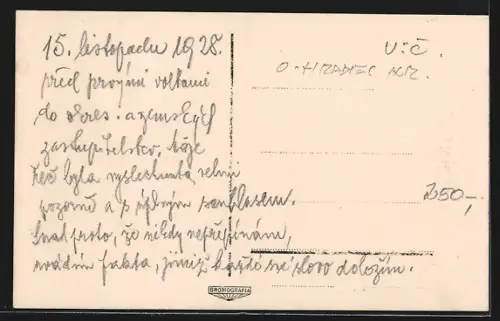 15. listopadu 1928.
před prvými volbami
do okres. a zemských
zastupitelstev, kde
řeč byla vyslechnuta velmi
pozorně a s plným souhlasem.
Snad proto, že nikdy nepřepínám,
uvádím fakta, jimiž každé své slovo doložím.
V:Č.
O-HRADEC KR.
350,-
GRAFIA